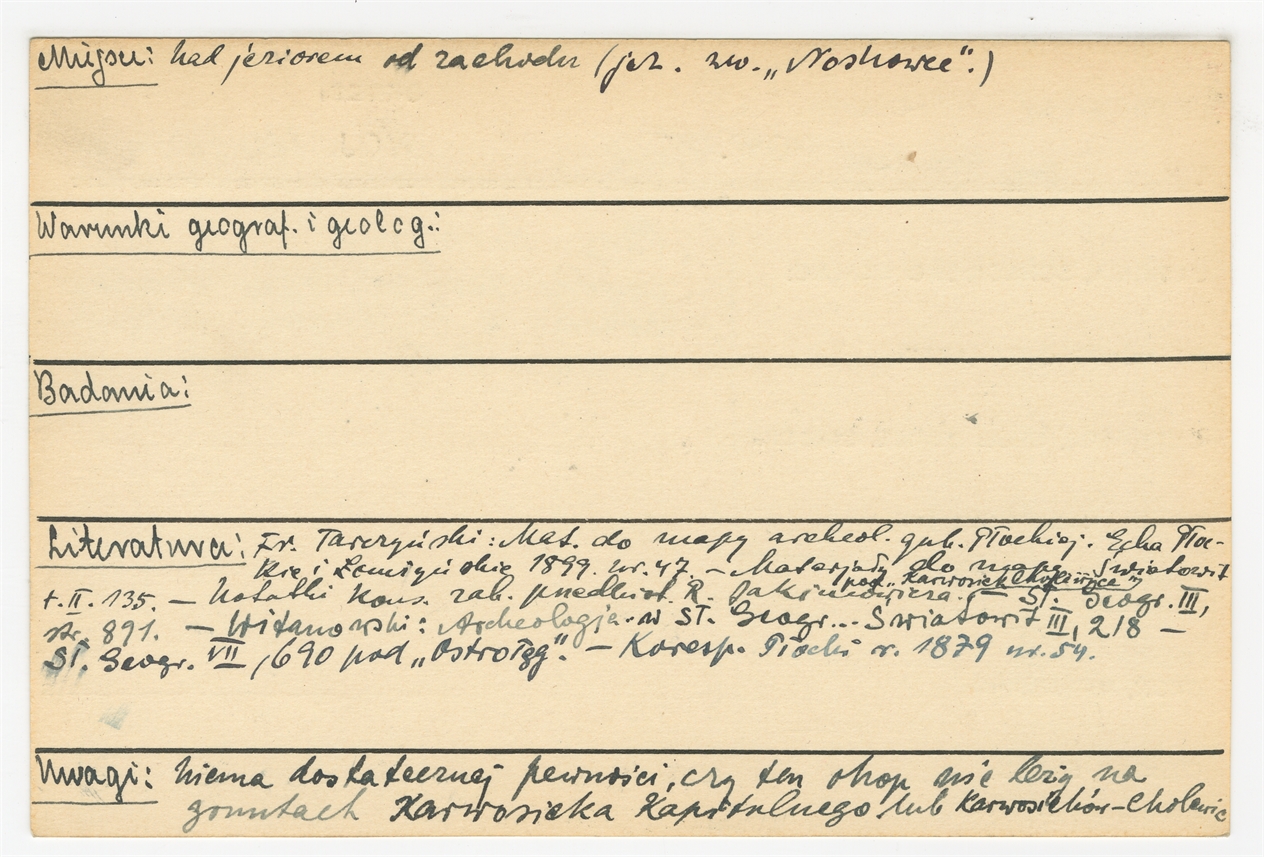 Miejsce: nad jeziorem od zachodu (jez. zw. „Noskowce".)
Warunki geograf. i geolog.:
Badania:
Literatura: Fr. Tarczyński: Mat. do mapy archeol. gub. Płockiej. Echa Płoc-
kie i Łomżyńskie 1899. nr. 47. – Materjały do mapy Światowit
pod „Karwosiek Cholewice"
t. II. 135. – Notatki Kons. zab. przedhist. R. Jakimowicza. – Sł. Geogr. III,
str. 891. – Witanowski: Archeologja w Sł. Geogr... Światowit III, 218 –
Sł. Geogr. VII, 690 pod „Ostrołęg". – Koresp. Płocki r. 1879 nr. 54.
Uwagi: niema dostatecznej pewności, czy ten okop nie leży na
gruntach Karwosieka Kapitulnego lub Karwosieków-Cholewic